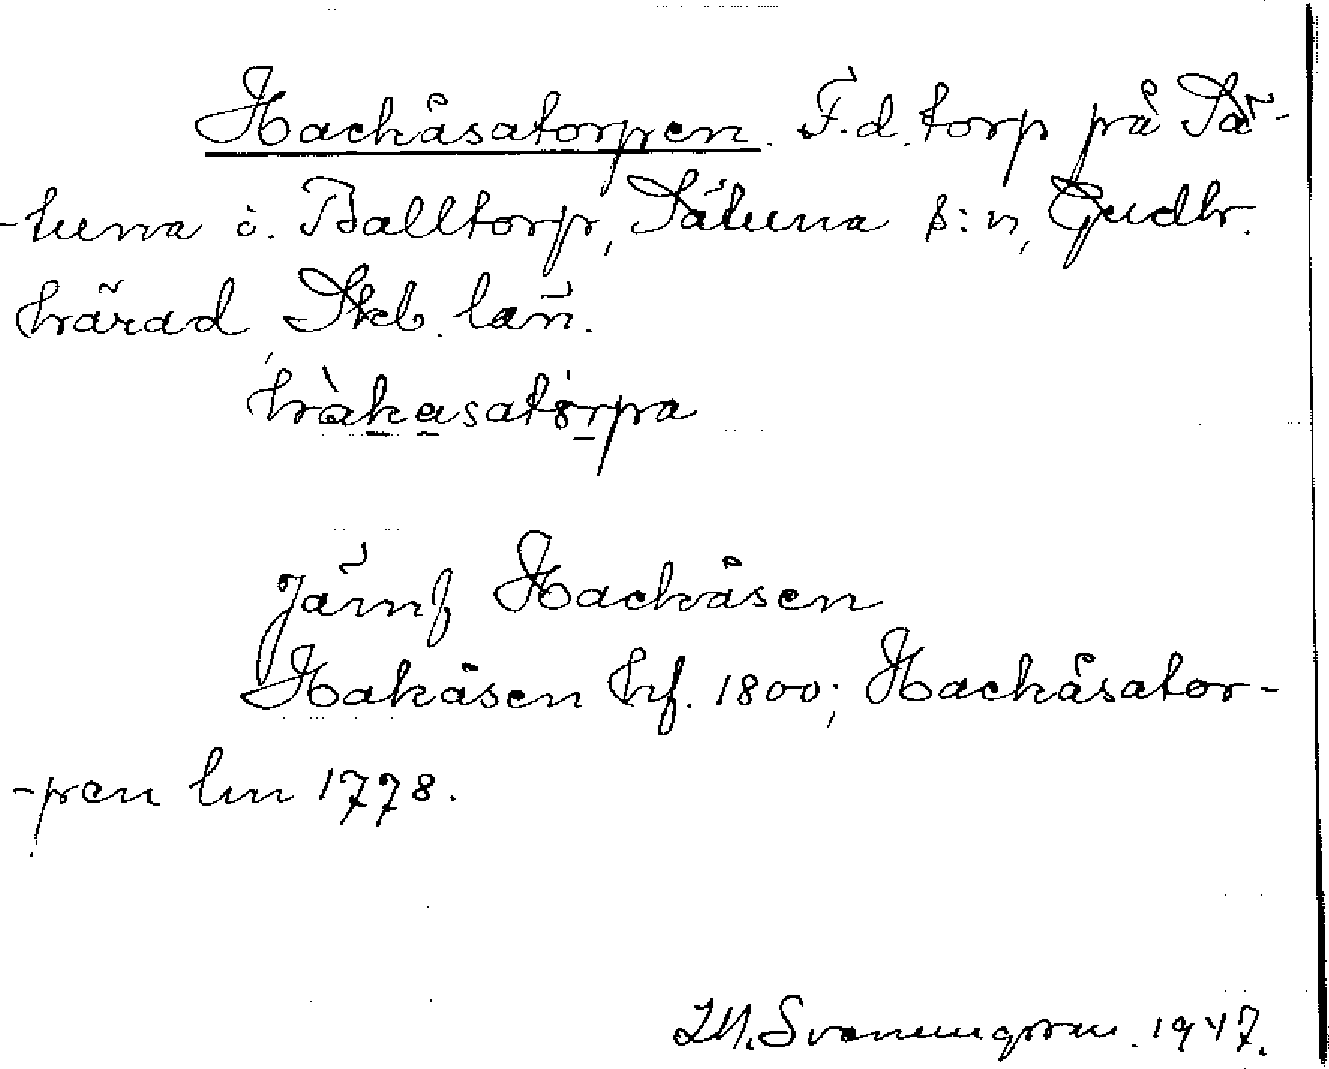 Hackåsatorpen. F.d. torp på Sä-
-tuna ö. Balltorp, Sätuna s:n, Gudh.
härad Skb. län.
hàkasatórpa
Jämf Hackåsen
Hakåsen Hf. 1800; Hackåsator-
-pen lm 1778.
1947.